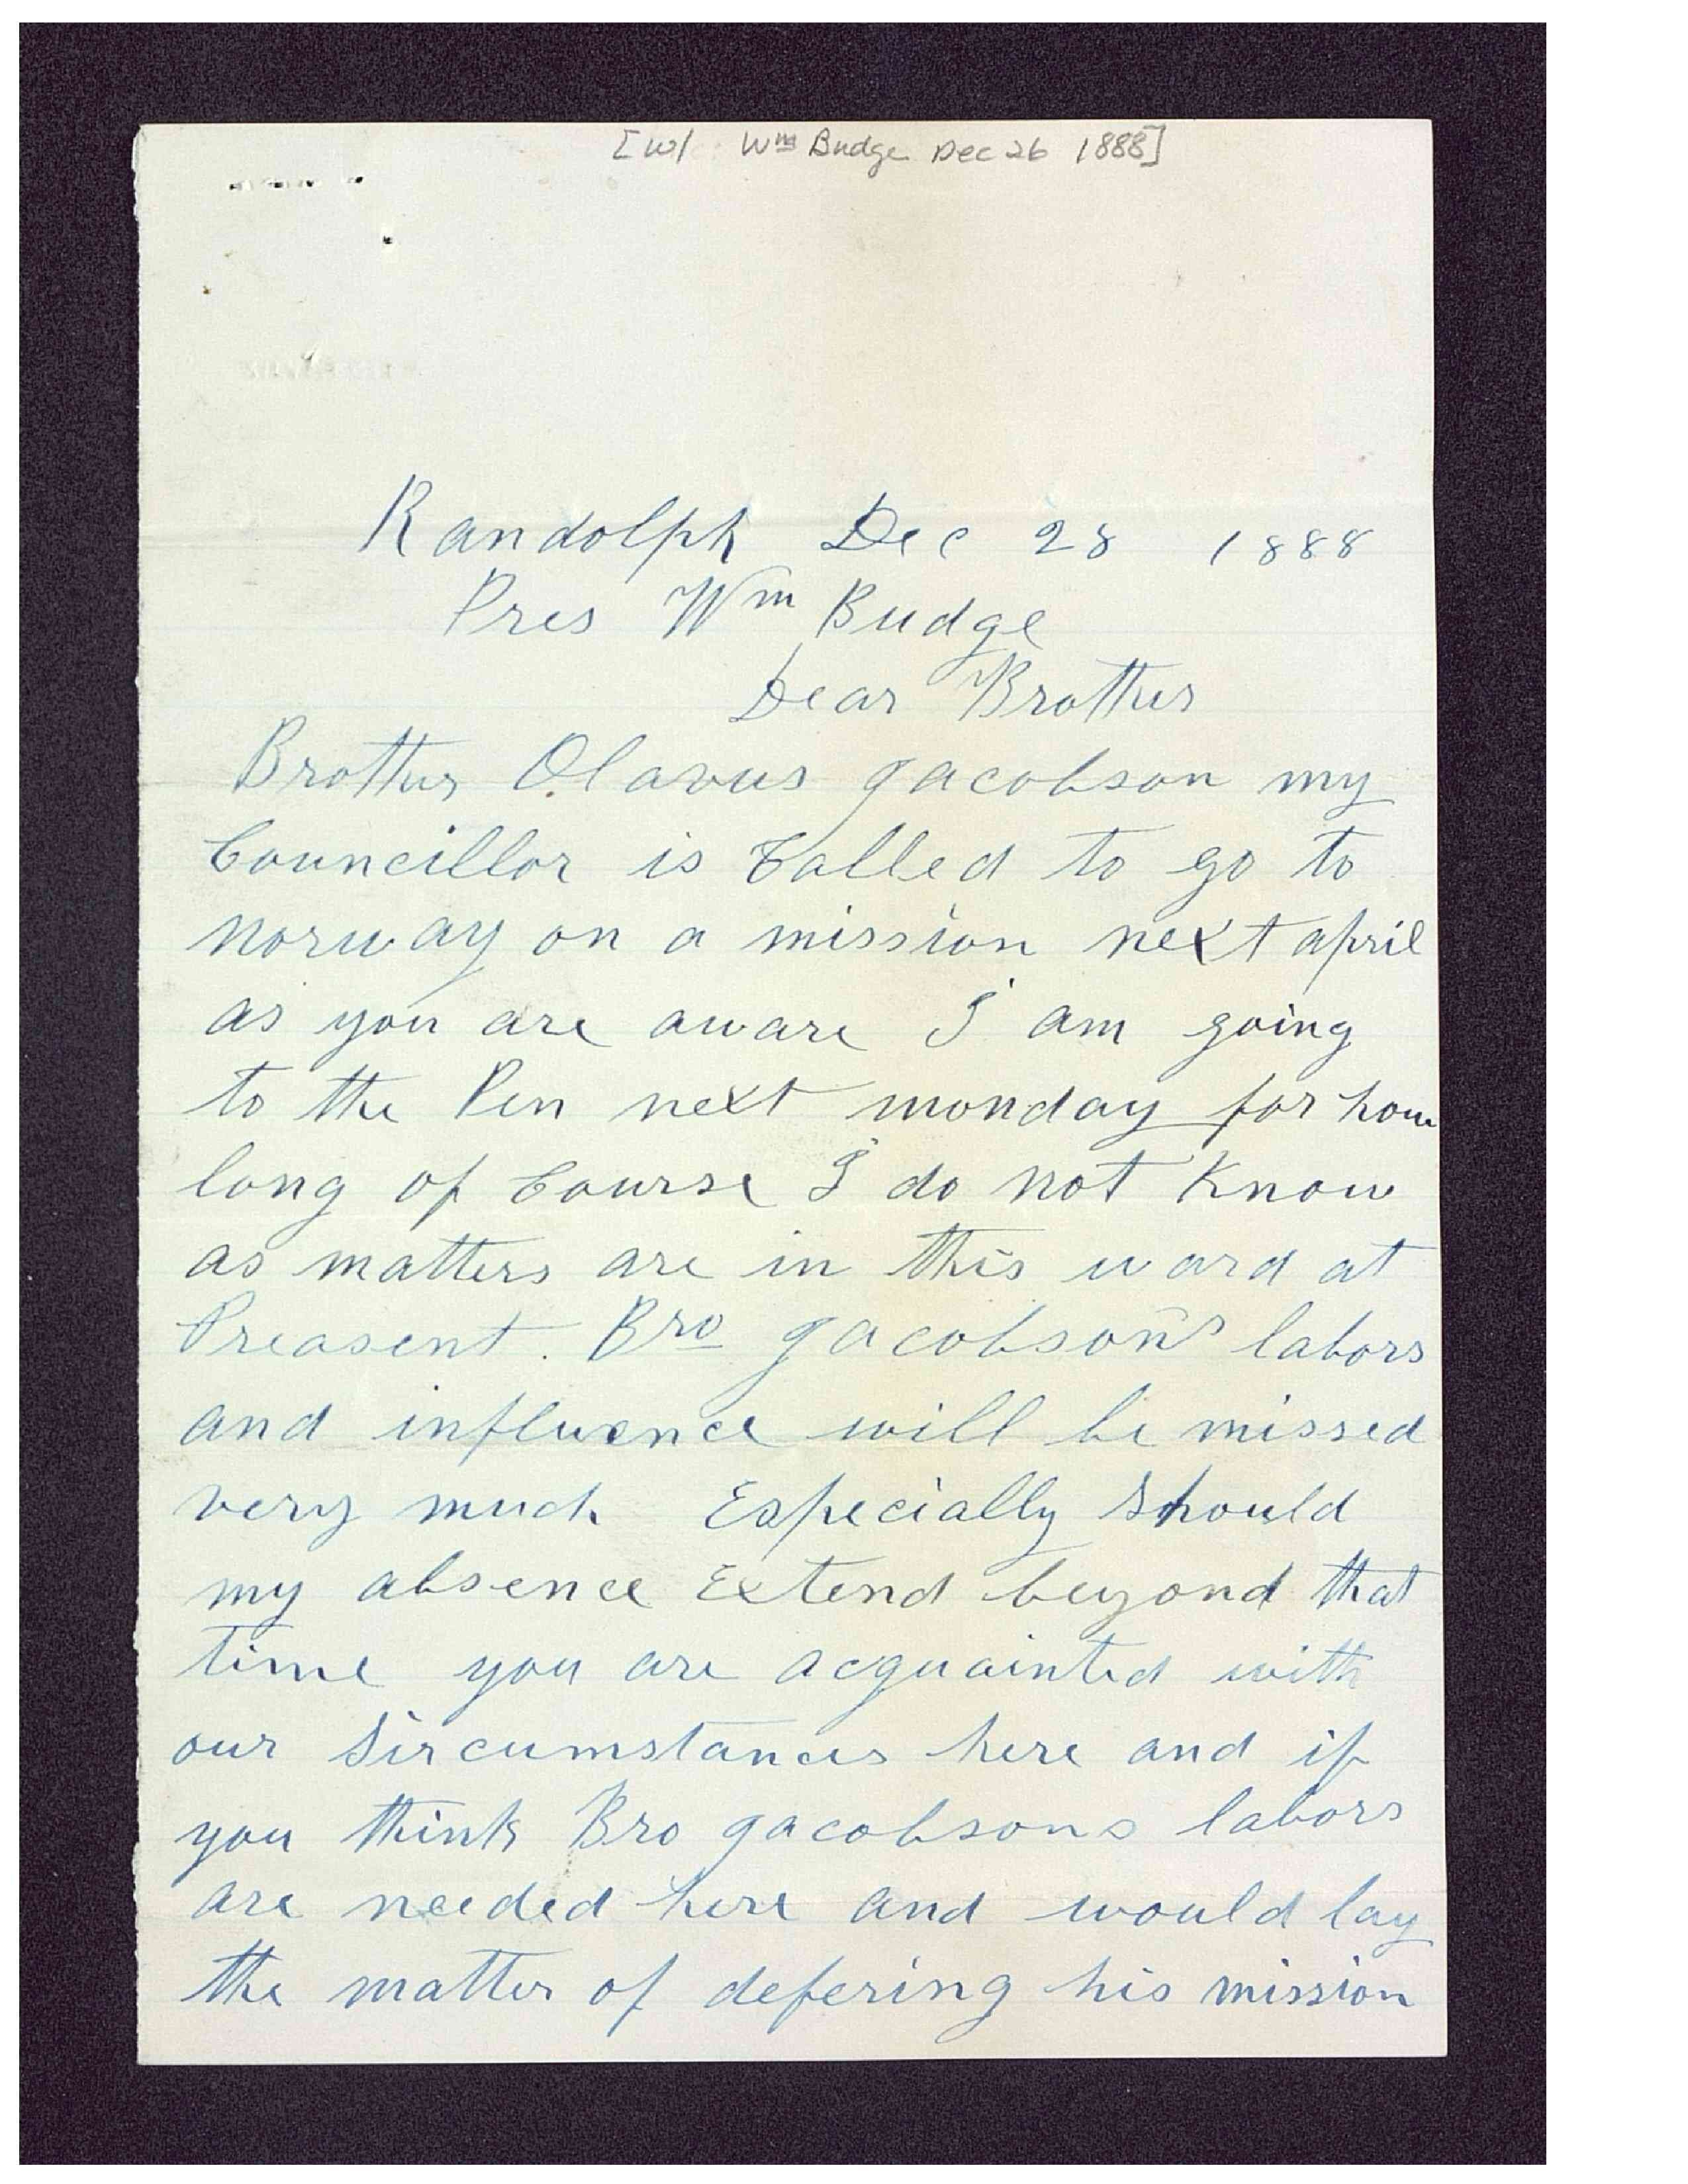 [w/ Wm Budge Dec 26 1888]
Randolph Dec 28 1888
Pres Wm Budge
Dear Brother
Brother Olavus Jacobson my
Councillor is Called to go to
Norway on a mission next april
as you are aware I am going
to the Pen next monday for how
long of Course I do not Know
as matters are in this ward at
Preasent. Bro Jacobsons labors
and influence will be missed
very much Especially Should
my absence Extend beyond that
time you are acquainted with
our Sircumstances here and if
you think Bro Jacobsons labors
are needed here and would lay
the matter of defering his mission